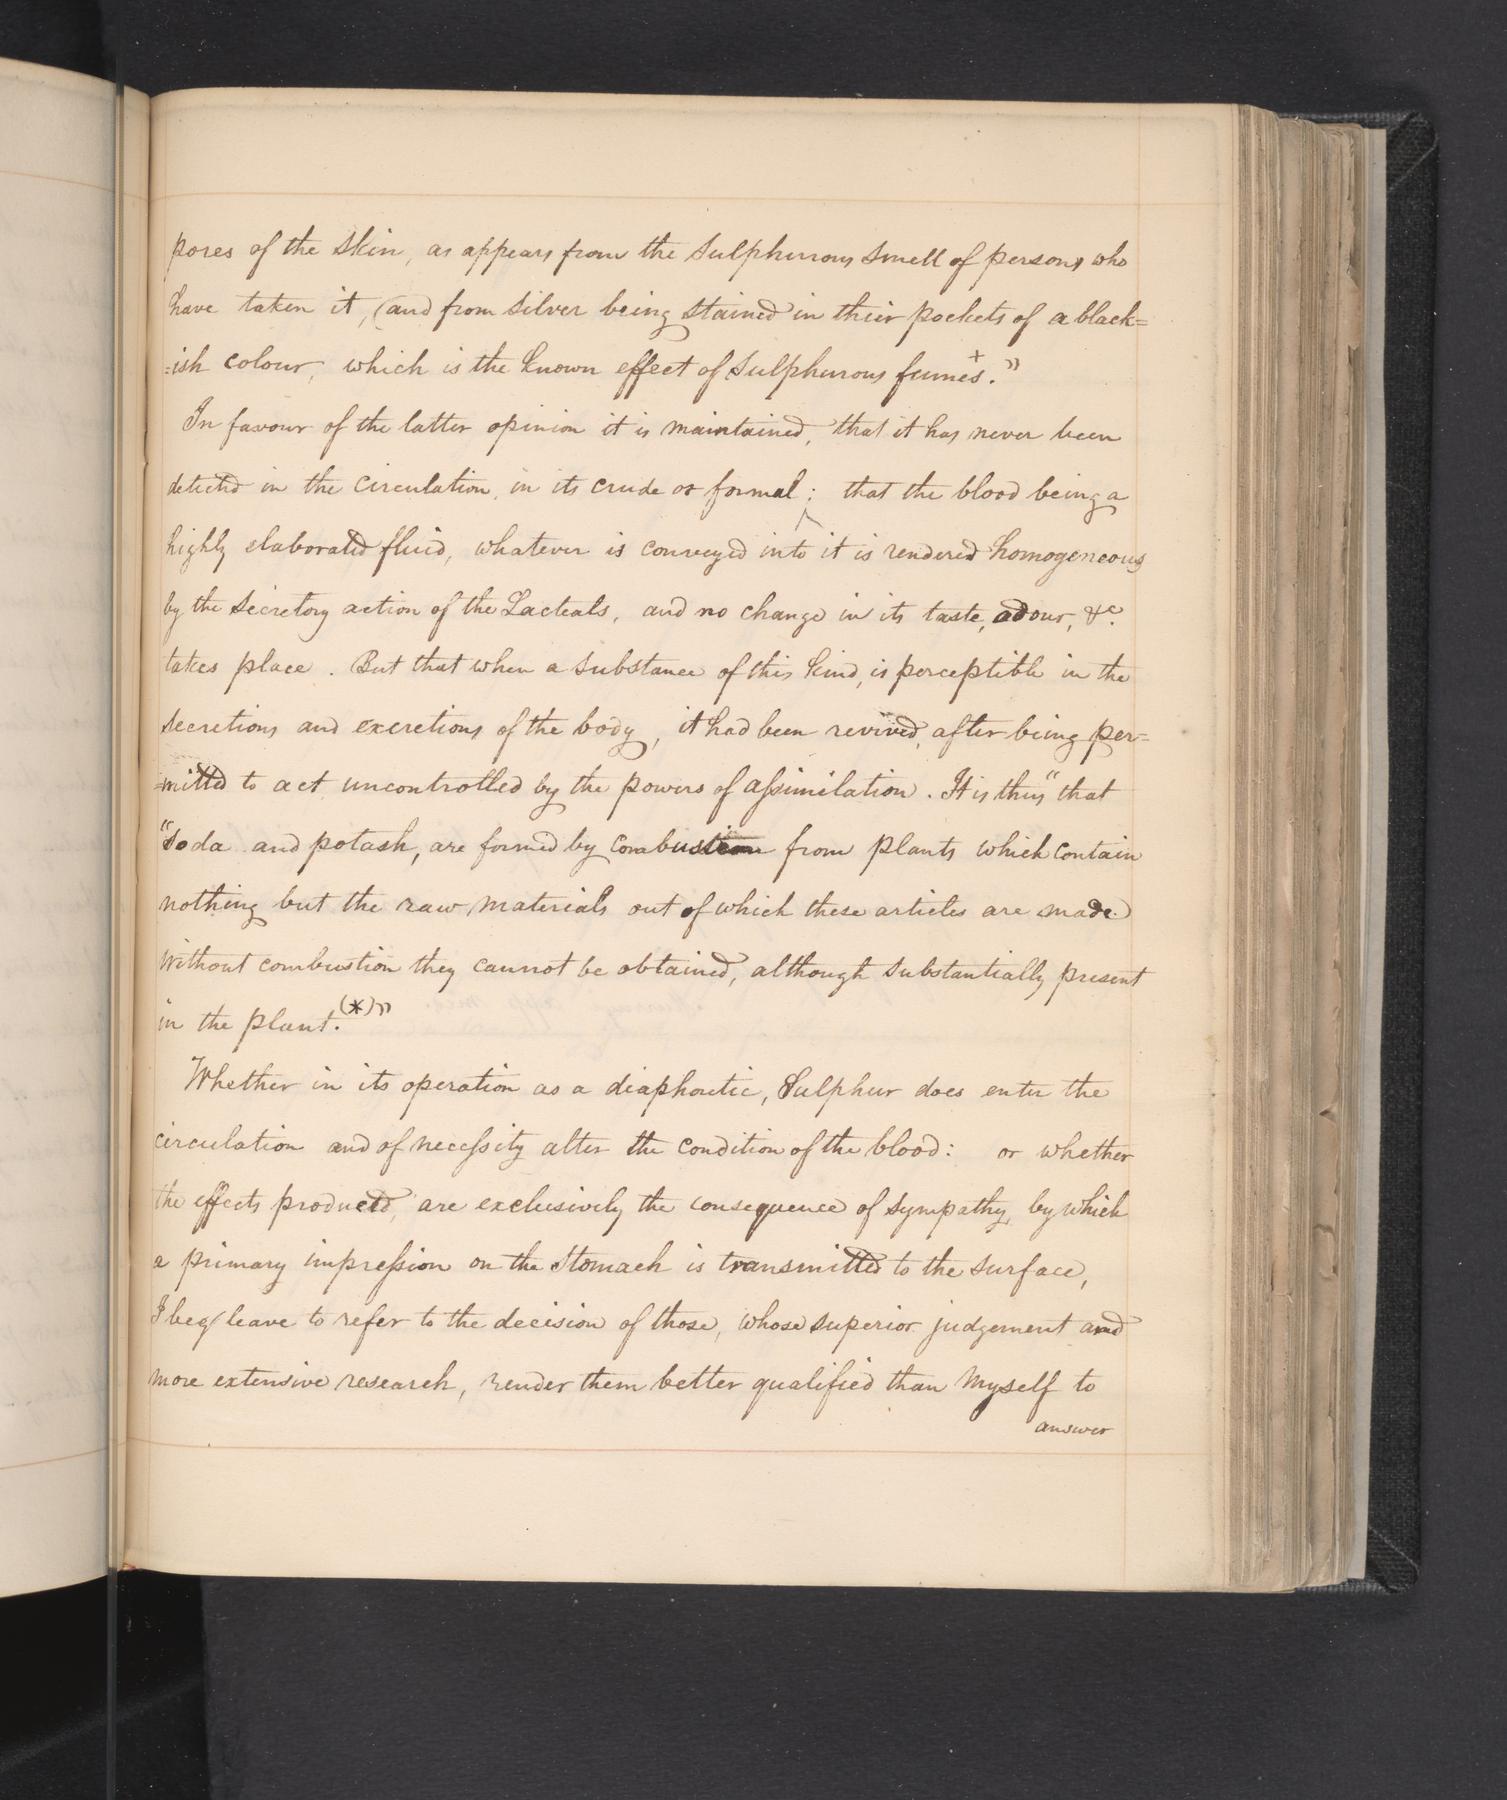 pores of the skin, as appears from the Sulphurous smell of persons who
have taken it, (and from silver being stained in their pockets of a black=
=ish colour, which is the known effect of Sulphurous fumes.+"
In favour of the latter opinion it is maintained, that it has never been
detected in the circulation, in its crude or formal; that the blood being a
highly elaborated fluid, whatever is conveyed into it is rendered homogeneous
by the Secretory action of the Lacteals, and no change in its taste, odour, &c.
takes place. But that when a substance of this kind, is perceptible in the
secretions and excretions of the body, it had been revived, after being per=
=mitted to act uncontrolled by the powers of assimilation. It is thus "that
"Soda and potash, are formed by combustion from plants which contain
nothing but the raw materials out of which these articles are made.
Without combustion they cannot be obtained, although substantially present
in the plant.(*)"
Whether in its operation as a diaphoretic, Sulphur does enter the
circulation and of necessity alter the condition of the blood: or whether
the effects produced, are exclusively the consequence of sympathy, by which
a primary impression on the Stomach is transmitted to the surface,
I beg leave to refer to the decision of those, whose superior judgement and
more extensive research, render them better qualified than myself to
answer